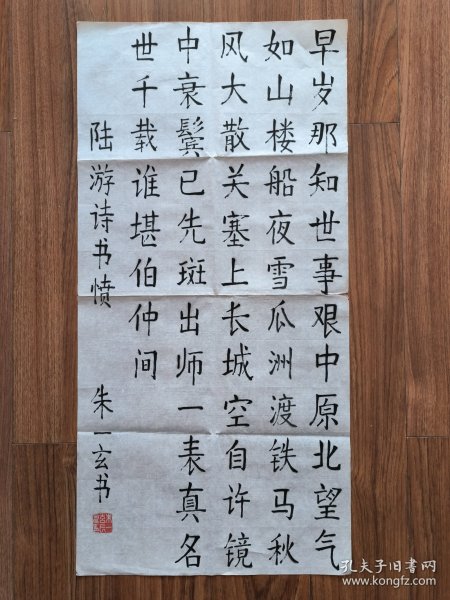 早岁那知世事艰中原北望气
如山楼船夜雪瓜洲渡铁马秋
风大散关塞上长城空自许镜
中衰鬓已先斑出师一表真名
世千载谁堪伯仲间
陆游诗书愤 朱一玄书
孔夫子旧书网
www.kongfz.com